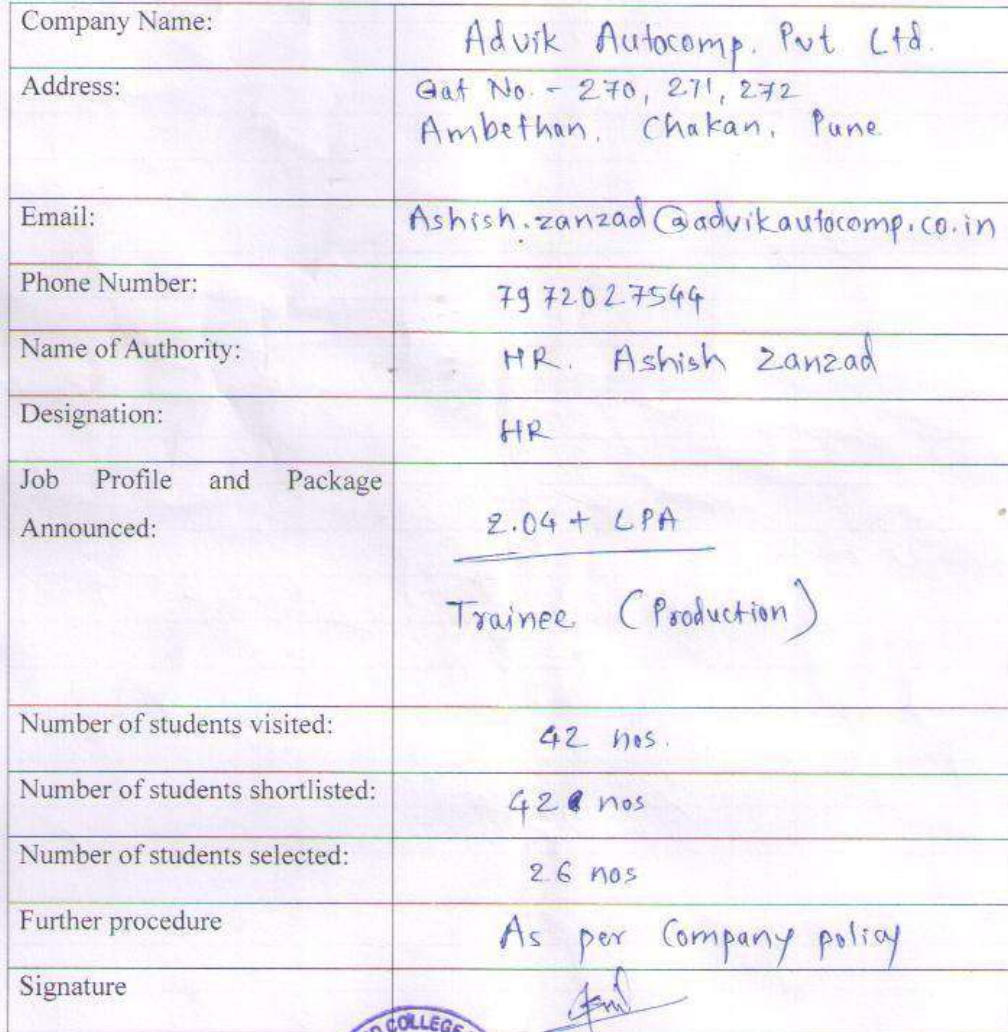 Company Name: Advik Autocomp. Pvt Ltd.
Address: Gat No. - 270, 271, 272
Ambethan, Chakan, Pune
Email: Ashish.zanzad@advikautocomp.co.in
Phone Number: 7972027544
Name of Authority: HR. Ashish Zanzad
Designation: HR
Job Profile and Package
Announced: 2.04 + LPA
Trainee (Production)
Number of students visited: 42 nos.
Number of students shortlisted: 42 nos
Number of students selected: 26 nos
Further procedure As per Company policy
Signature
COLLEGE